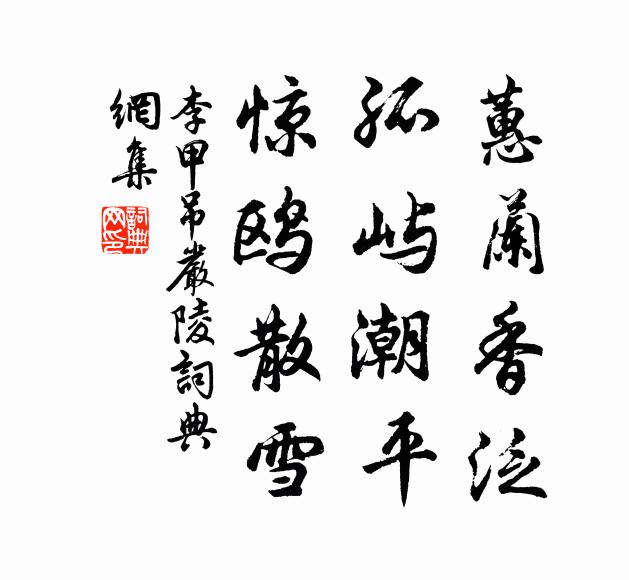 蕙蘭香泛
孤屿潮平
惊鸥散雪
李甲吊嚴陵詞典
網集
詞典
网印